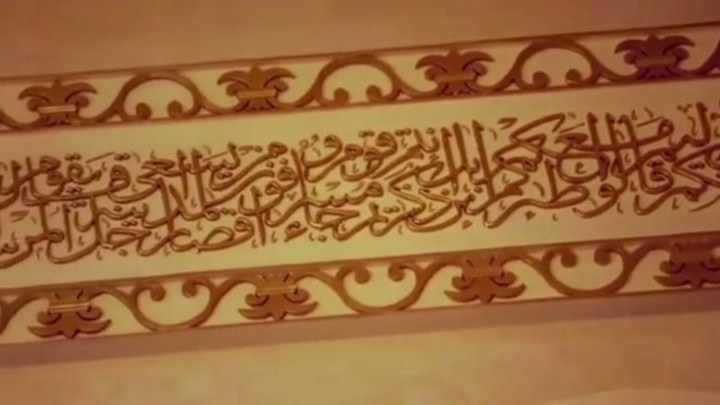 قالوا طئركم معكم ائن ذكرتم بل انتم قوم مسرفون وجاء من اقصا المدينة رجل يسعى قال يقوم